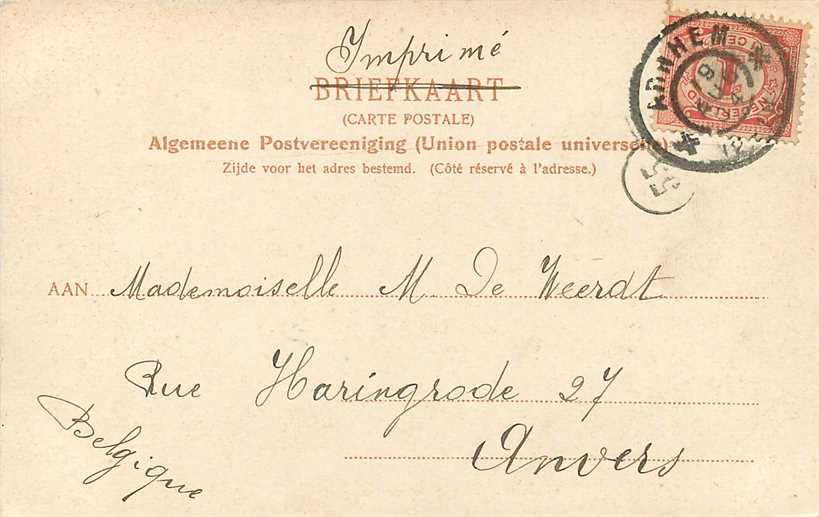 Imprimé
BRIEFKAART
(CARTE POSTALE)
Algemeene Postvereeniging (Union postale universelle)
Zijde voor het adres bestemd. (Côté réservé à l'adresse.)
ARNHEM
55
AAN Mademoiselle M. De Weerdt
Rue Haringrode 27
Anvers
Belgique